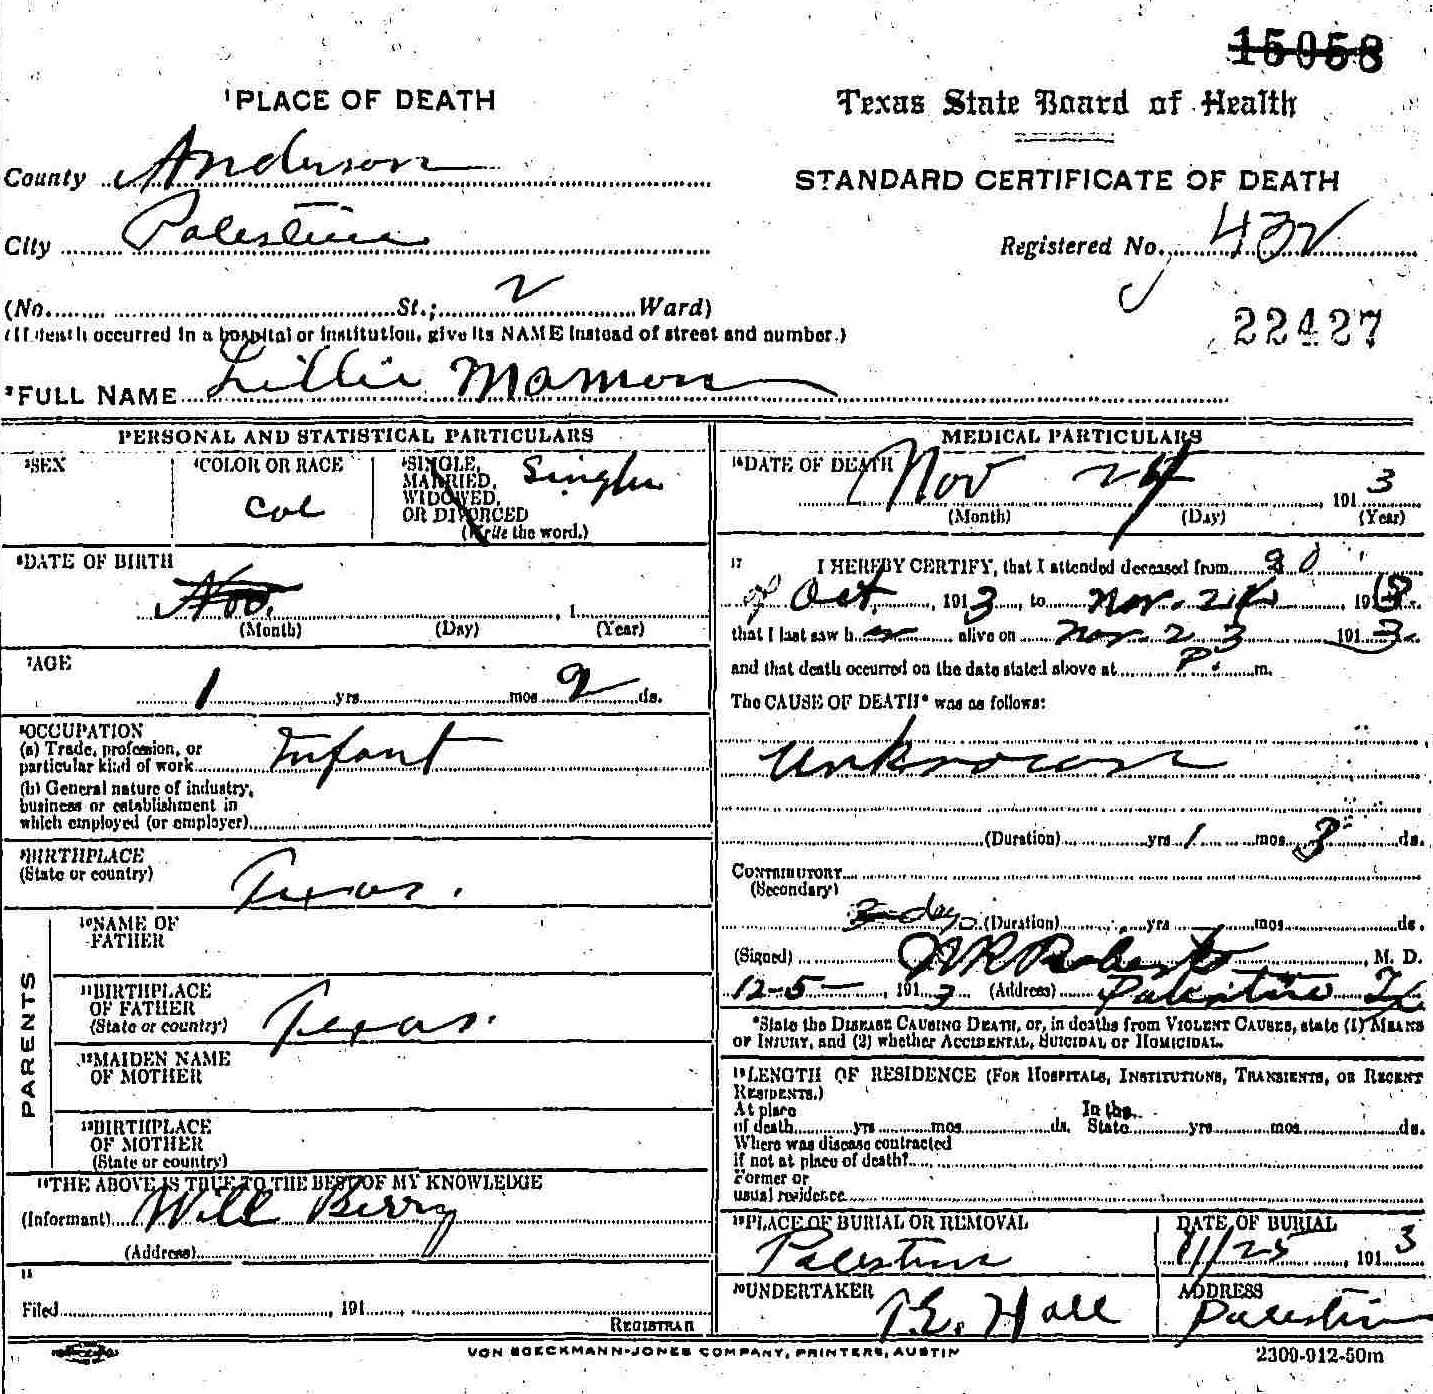 15058
¹PLACE OF DEATH
Texas State Board of Health
County Anderson
STANDARD CERTIFICATE OF DEATH
City Palestine
Registered No. 432
(No. St.; 2 Ward)
22427
(If death occurred in a hospital or institution, give its NAME instead of street and number.)
²FULL NAME Lillie Mamon
PERSONAL AND STATISTICAL PARTICULARS
³SEX
⁴COLOR OR RACE
Col
⁵SINGLE,
MARRIED,
WIDOWED,
OR DIVORCED
(Write the word.)
Single
⁶DATE OF BIRTH
Nov. , 1
(Month) (Day) (Year)
⁷AGE
1 yrs mos 2 ds.
⁸OCCUPATION
(a) Trade, profession, or
particular kind of work Infant
(b) General nature of industry,
business or establishment in
which employed (or employer)
⁹BIRTHPLACE
(State or country) Texas.
PARENTS
¹⁰NAME OF
FATHER
¹¹BIRTHPLACE
OF FATHER
(State or country) Texas.
¹²MAIDEN NAME
OF MOTHER
¹³BIRTHPLACE
OF MOTHER
(State or country)
¹⁴THE ABOVE IS TRUE TO THE BEST OF MY KNOWLEDGE
(Informant) Will Berry
(Address)
¹⁵
Filed , 191
REGISTRAR
MEDICAL PARTICULARS
¹⁶DATE OF DEATH
Nov 24 , 191 3
(Month) (Day) (Year)
¹⁷ I HEREBY CERTIFY, that I attended deceased from
Oct. , 191 3, to Nov. 24 191 3
that I last saw h er alive on Nov. 23 191 3
and that death occurred on the date stated above at P. m.
The CAUSE OF DEATH* was as follows:
Unknown
(Duration) yrs 1 mos 3 ds.
CONTRIBUTORY
(Secondary)
3 days (Duration) yrs mos ds.
(Signed) Roberts , M. D.
12-5- , 191 3 (Address) Palestine Tx
*State the DISEASE CAUSING DEATH, or, in deaths from VIOLENT CAUSES, state (1) MEANS
OF INJURY, and (2) whether ACCIDENTAL, SUICIDAL or HOMICIDAL.
¹⁸LENGTH OF RESIDENCE (FOR HOSPITALS, INSTITUTIONS, TRANSIENTS, OR RECENT
RESIDENTS.)
At place In the
of death yrs mos ds. State yrs mos ds.
Where was disease contracted
if not at place of death?
Former or
usual residence
¹⁹PLACE OF BURIAL OR REMOVAL
Palestine
DATE OF BURIAL
11/25 , 191 3
²⁰UNDERTAKER
T.E. Hall
ADDRESS
Palestine
VON BOECKMANN-JONES COMPANY, PRINTERS, AUSTIN
2309-912-50m